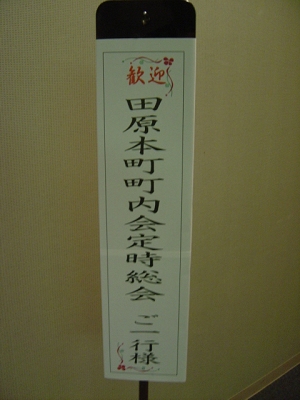 歓迎
田原本町町内会定時総会 ご一行様